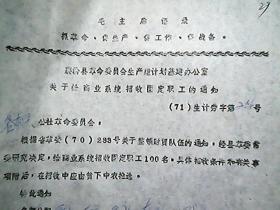 29
毛主席语录
抓革命、促生产、促工作、促战备。
县革命委员会生产组计划基建办公室
关于给商业系统招收固定职工的通知
(71)生计劳字第 号
公社革命委员会:
根据省革委(70)283号关于整顿财贸队伍的通知,经县革委常
委研究决定,给商业系统招收固定职工100名,具体招收条件和有关事
项附后,在招收中应由贫下中农推选。
特此通知